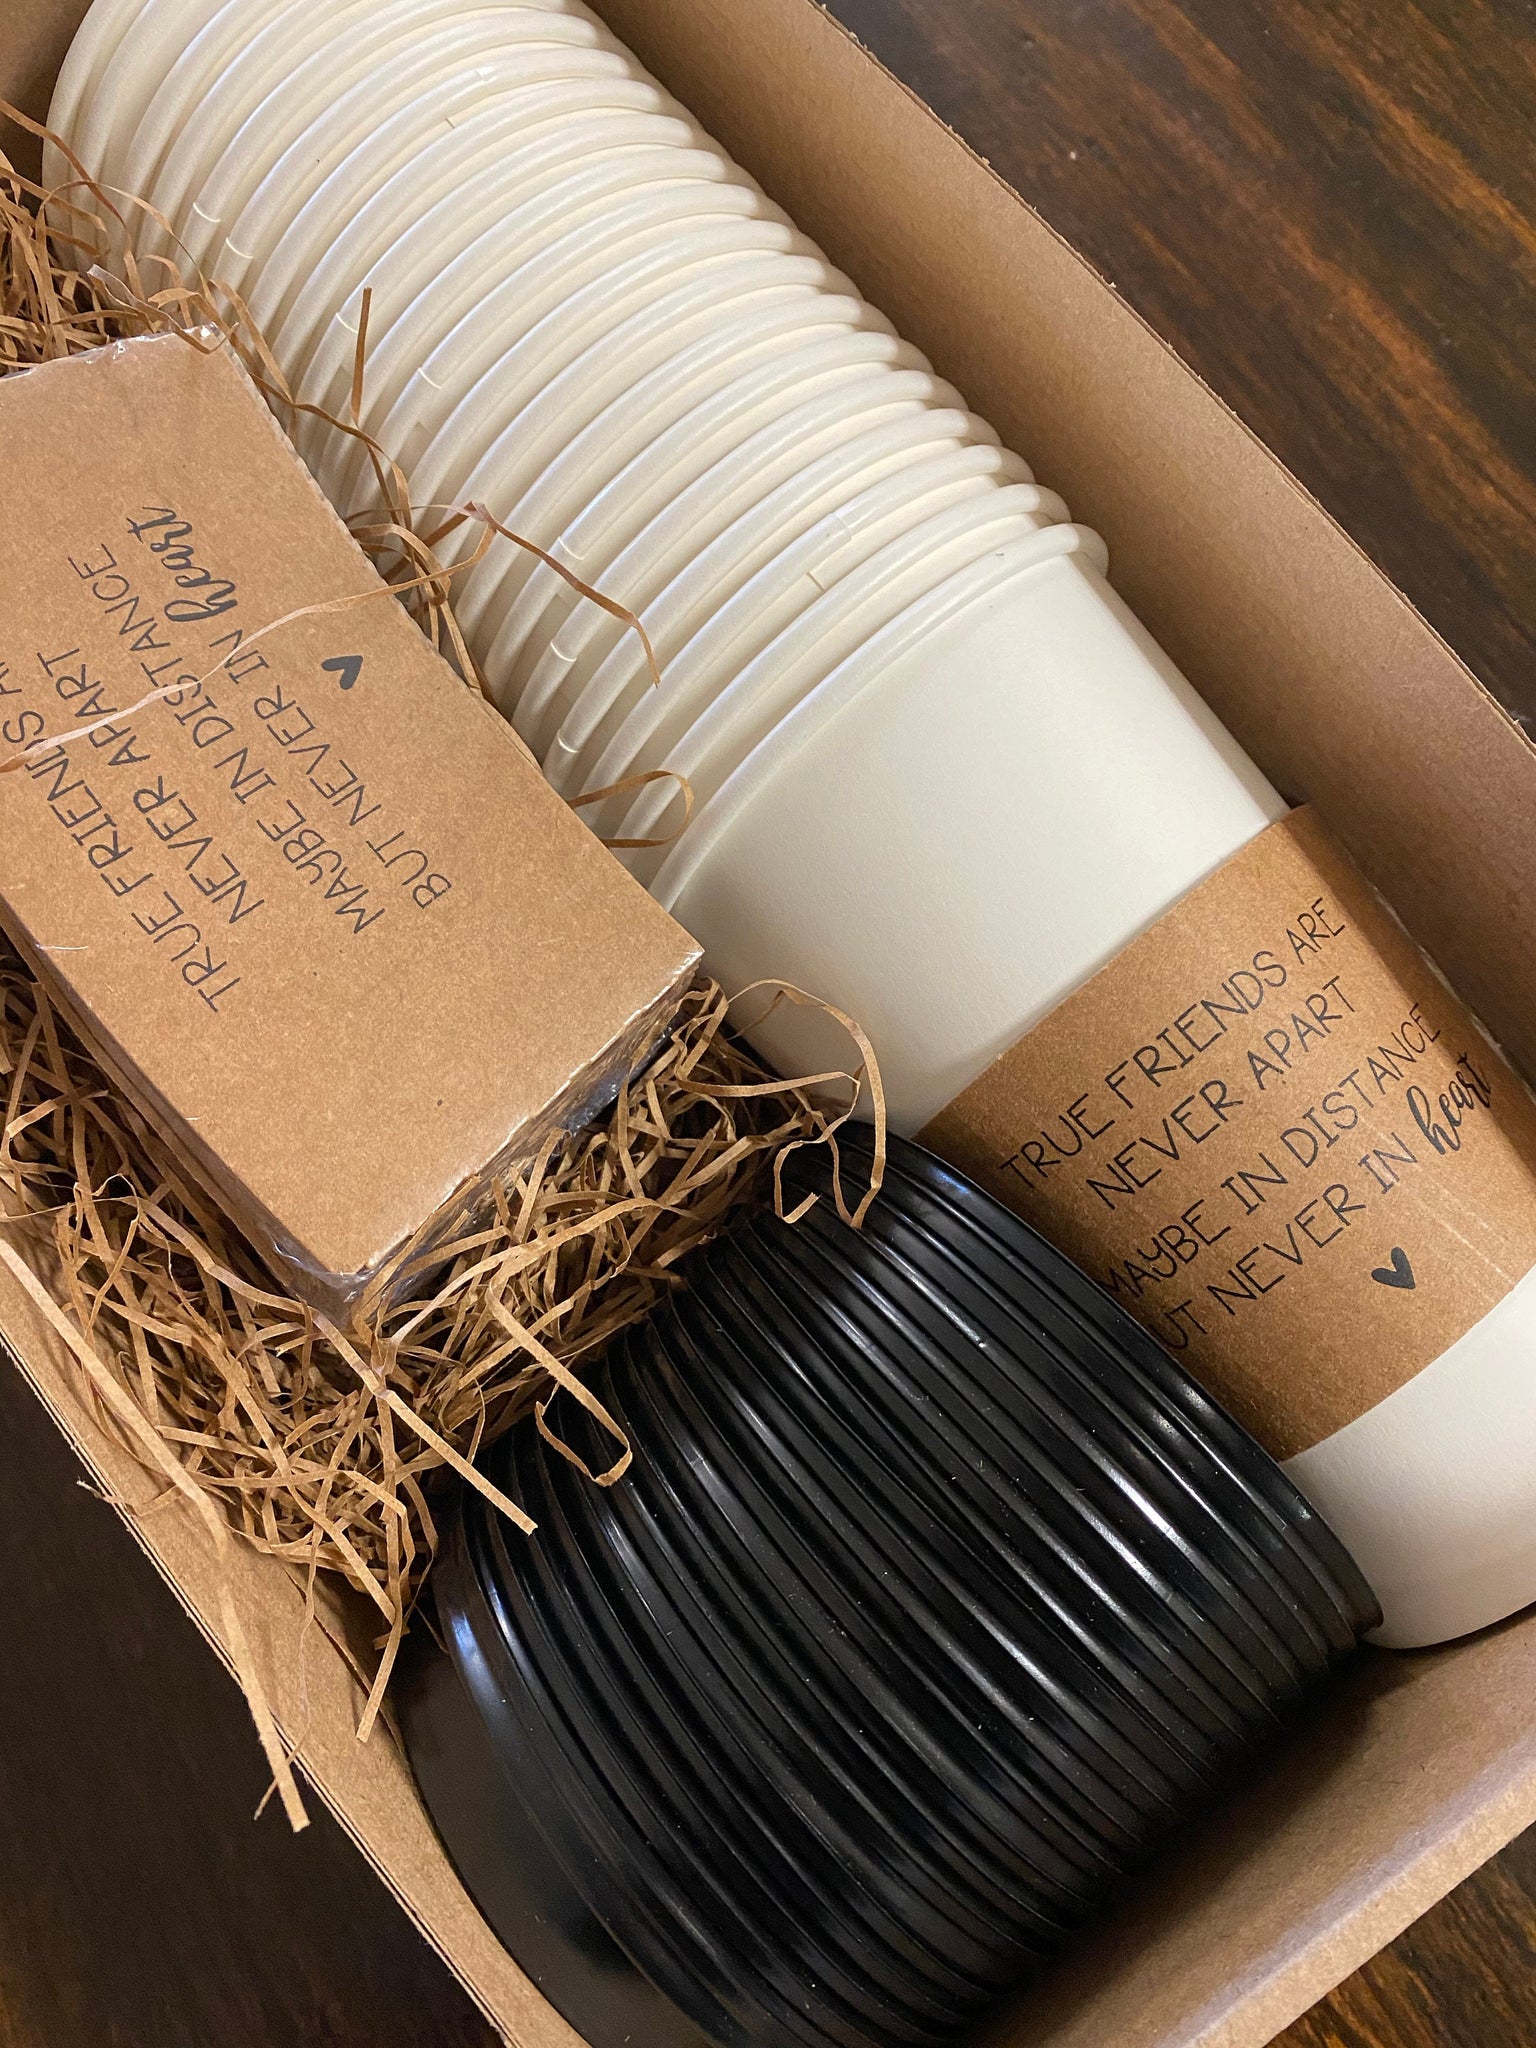 TRUE FRIENDS A
NEVER APART
MAYBE IN DISTANCE
BUT NEVER IN heart
TRUE FRIENDS ARE
NEVER APART
MAYBE IN DISTANCE
UT NEVER IN heart